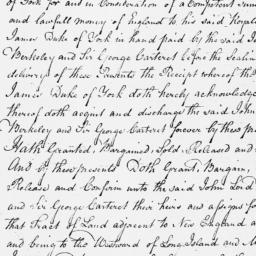 of York for and in Consideration of a Competent sum
and lawfull money of England to his said Royal
James Duke of York in hand paid by the said Jo
Berkeley and Sir George Carteret before the Sealin
delivery of these Presents the Receipt whereof th
James Duke of York doth hereby acknowledge
thereof doth acquit and discharge the said John
Berkeley and Sir George Carteret forever by these pr
Hath Granted, Bargained, Sold, Released and
And By these presents Doth Grant, Bargain,
Release and Confirm unto the said John Lord
and Sir George Carteret their heirs and assigns fo
that Tract of Land adjacent to New England a
and being to the Westward of Long Island and M